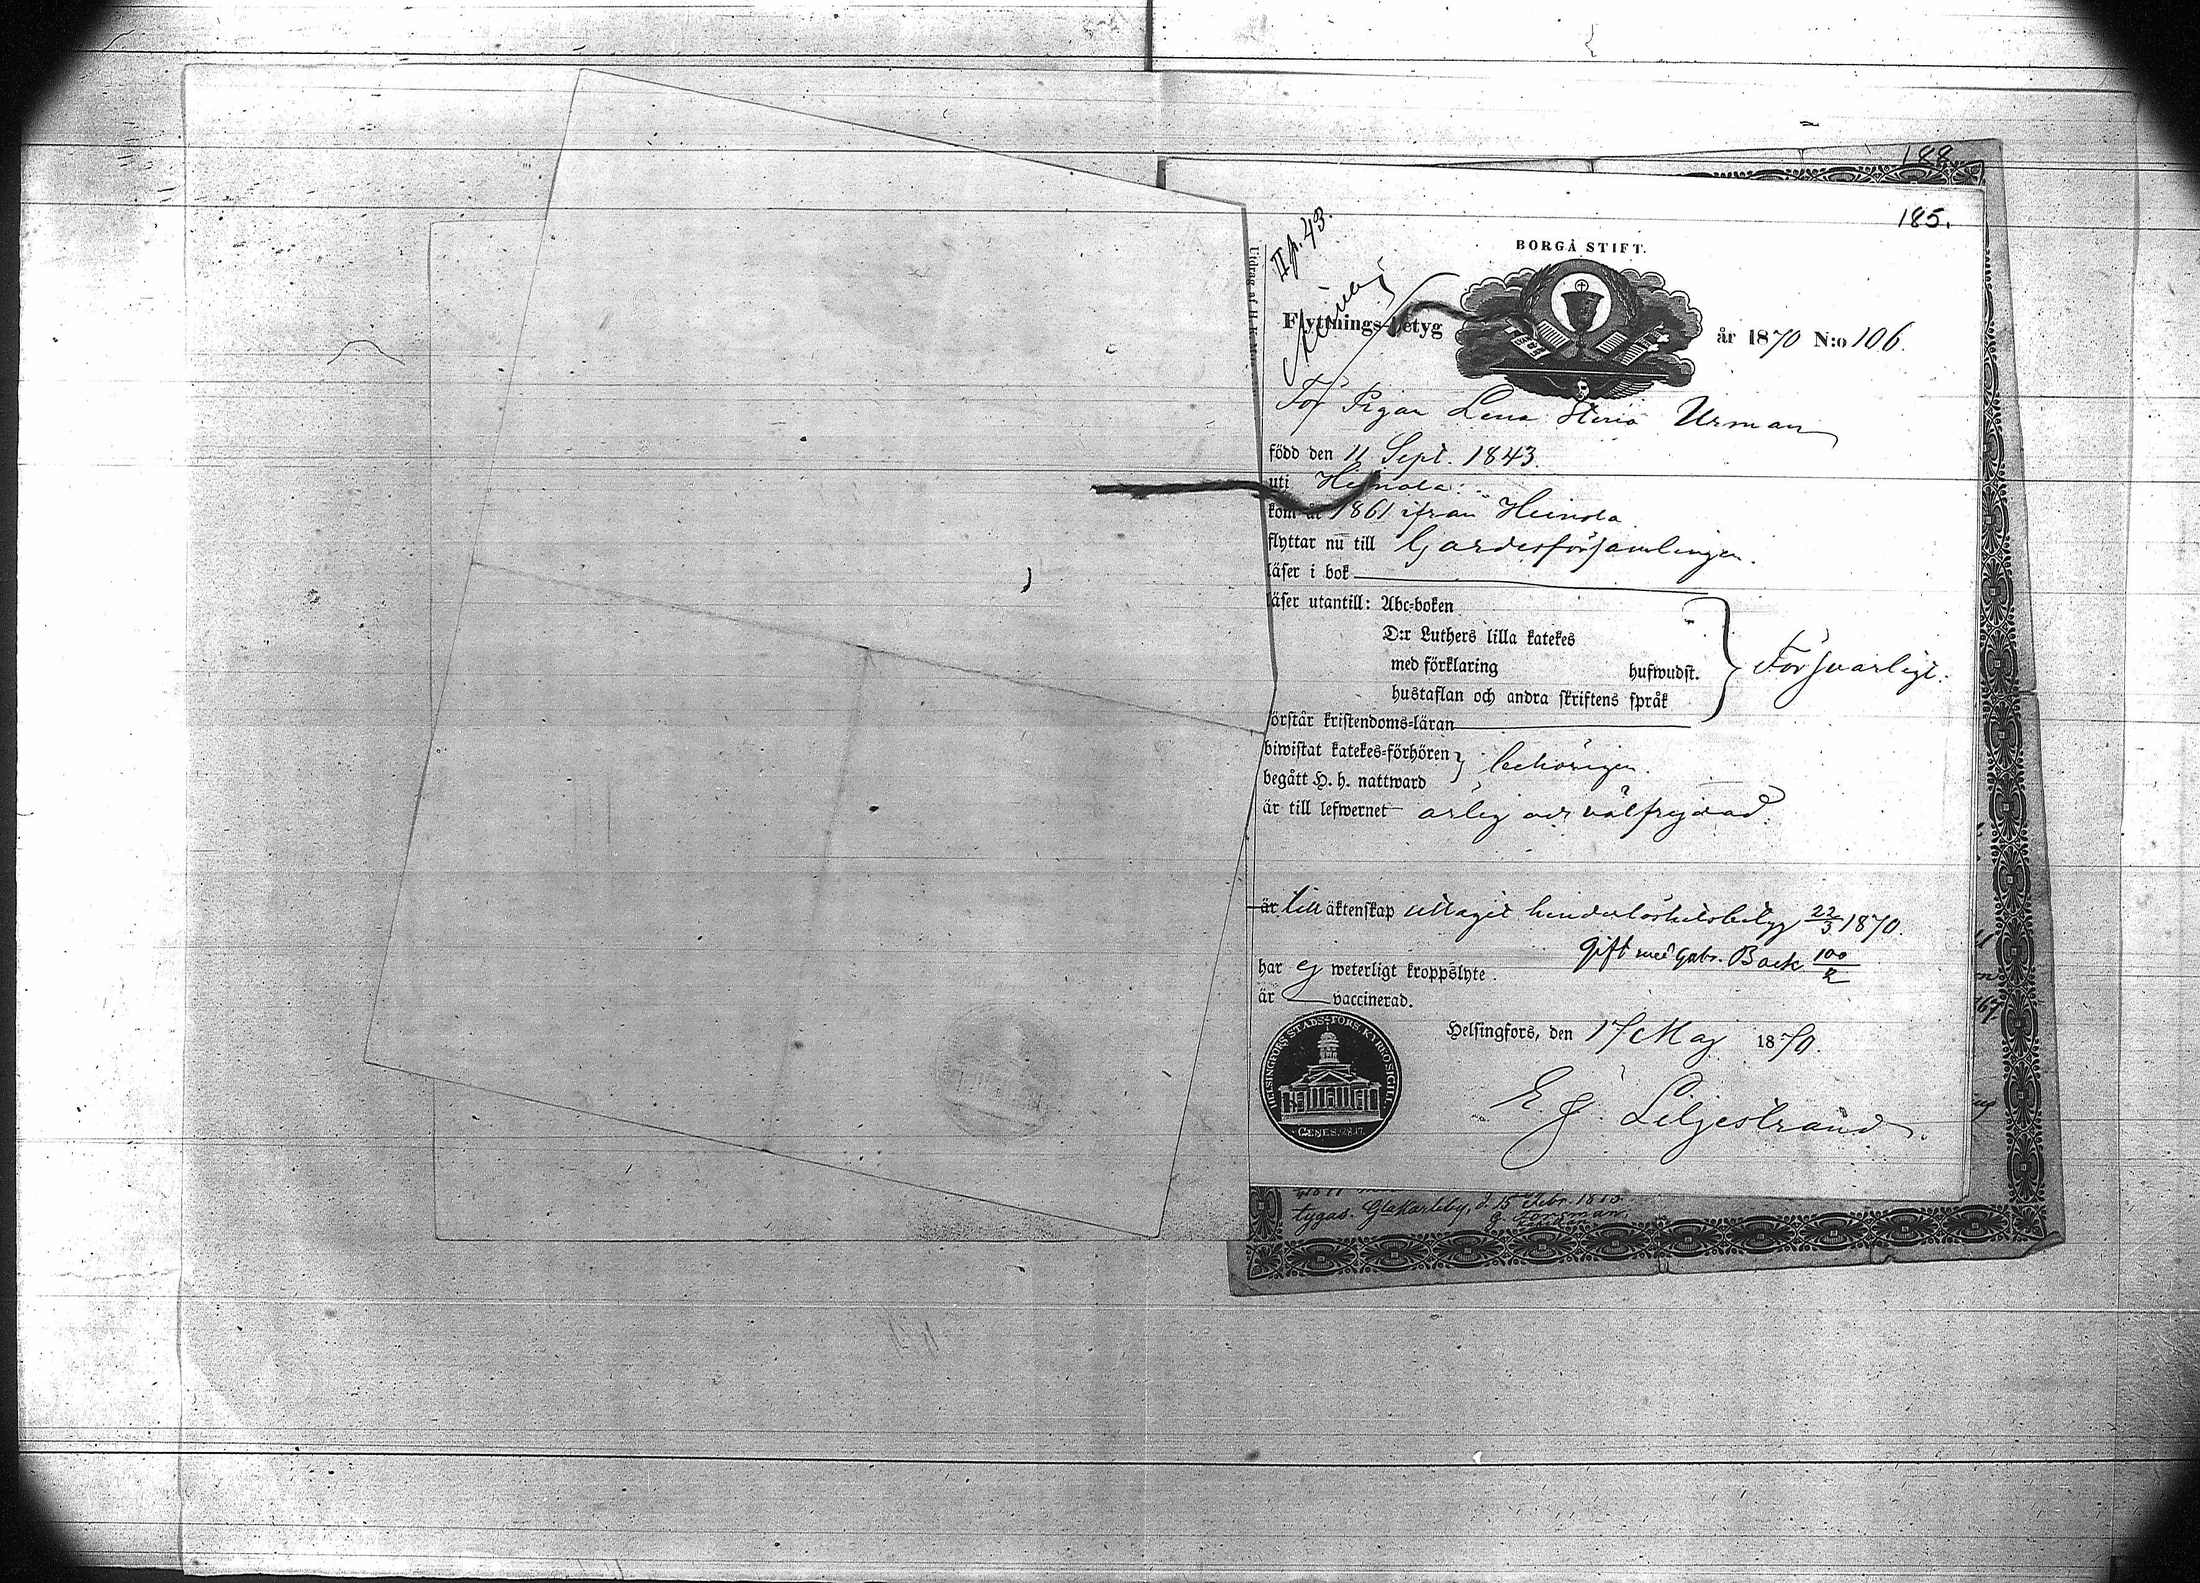 188.
185.
II p. 43.
BORGÅ STIFT.
Flyttnings-betyg år 1870 N:o 106.
För Pigan Lena Stina Urman
född den 11 Sept. 1843.
uti Heinola.
kom år 1861 ifrån Heinola
flyttar nu till Gardesförsamlingen.
läser i bok
läser utantill: Abc-boken
D:r Luthers lilla katekes
med förklaring hufwudst.
hustaflan och andra skriftens språk
Försvarligt.
förstår kristendoms-läran
biwistat katekes-förhören
begått H. h. nattward
behörigen.
är till lefwernet ärlig och välfrejdad.
är till äktenskap uttagit hinderlöshetsbetyg 22/3 1870.
Gift med Gabr. Back 100/2
har ej weterligt kroppslyte.
är vaccinerad.
Helsingfors, den 17 Maj 1870.
E. J. Liljestrand.
HELSINGFORS STADS-FÖRS. KYRKOSIGILL.
tygas. Gla Karleby, d. 15 Febr.
G. Forsman.